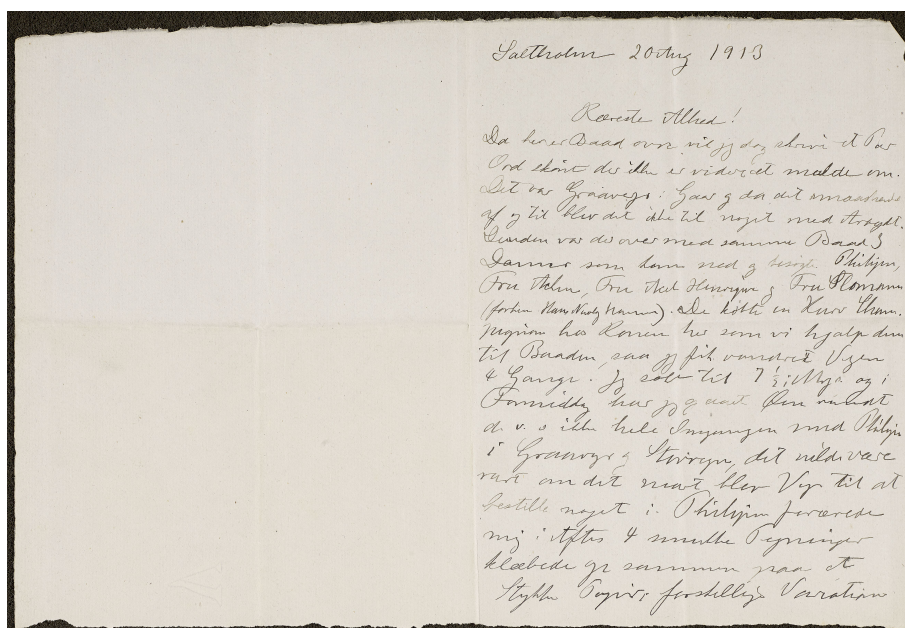 Saltholm 20 Aug 1913
Kæreste Alhed!
Da her er Baad over vil jeg dog skrive et Par
Ord skönt der ikke er videre at melde om.
Det var Graavejr i Gaar og da det smaaregnede
af og til blev det ikke til noget med
Desuden var der over med samme Baad 3
Damer som kom ned og besøgte Philipsen,
Fru Fru Axel Henriques og Fru
(forhen Hans Nicolaj Hansen). De købte en Kurv Cham-
pignon hos Konen her som vi hjalp dem
til Baaden, saa jeg fik vandret Vejen
4 Gange. Jeg sov til 7 1/2 i Morges og i
Formiddag har jeg gaaet Øen rundt
d. v. s ikke hele Omgangen med Philipsen
i Graavejr og Stovregn, det vilde være
rart om det snart blev Vejr til at
bestille noget i. Philipsen forærede
mig i Aftes 4 smukke Tegninger
klæbede op sammen paa et
Stykke Papir, forstellige Variation